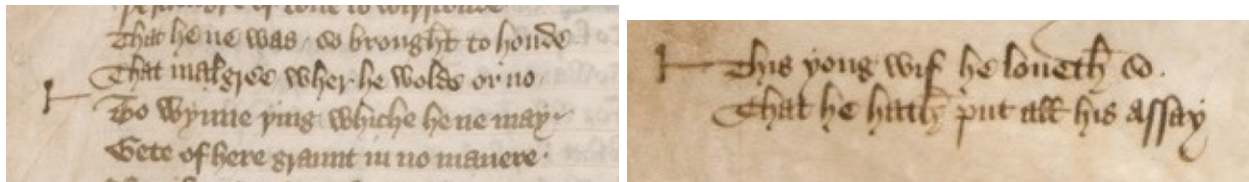 That he ne was so brought to honde
That malgree wher he wolde or no
To wynne þing whiche he ne may
Gete of here graunt in no manere
This yong wif he loueth so
That he hath put all his assay